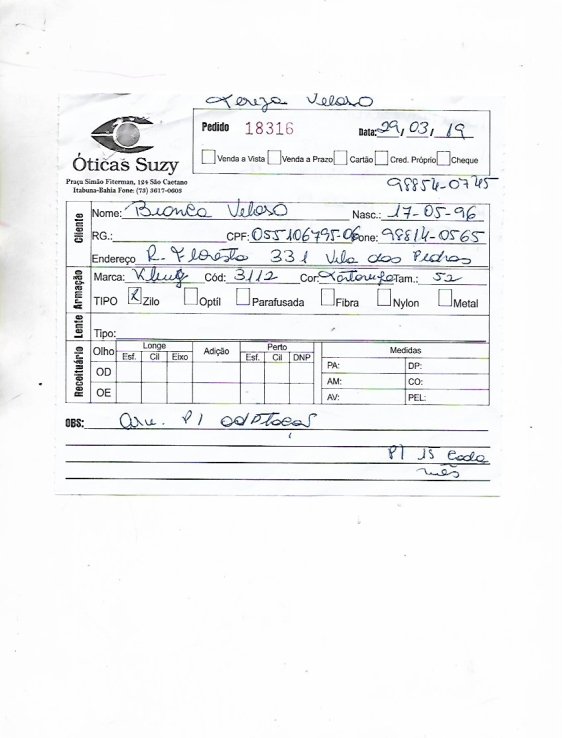 Tereza Veloso
Pedido 18316 Data: 29,03,19
Venda a Vista Venda a Prazo Cartão Cred. Próprio Cheque
Óticas Suzy
Praça Simão Fiterman, 124 São Caetano
Itabuna-Bahia Fone: (73) 3617-0605
98854-0745
Cliente
Nome: Bianca Veloso Nasc.: 17-05-96
RG.: CPF: 055106795-06 Fone: 98814-0565
Endereço R. Floresta 331 Vila das Pedras
Armação
Marca: Cód: 3112 Cor: Tartaruga Tam.: 52
TIPO X Zilo Optíl Parafusada Fibra Nylon Metal
Lente
Tipo:
Receituário
Olho Longe Adição Perto Medidas
Esf. Cil Eixo Esf. Cil DNP
OD PA: DP:
AM: CO:
OE AV: PEL:
OBS: P/
P/ 15 Cada
mês